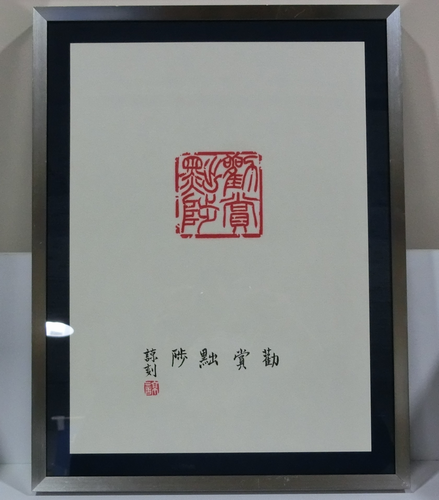 勸賞
黜陟
勸賞黜陟
諒刻